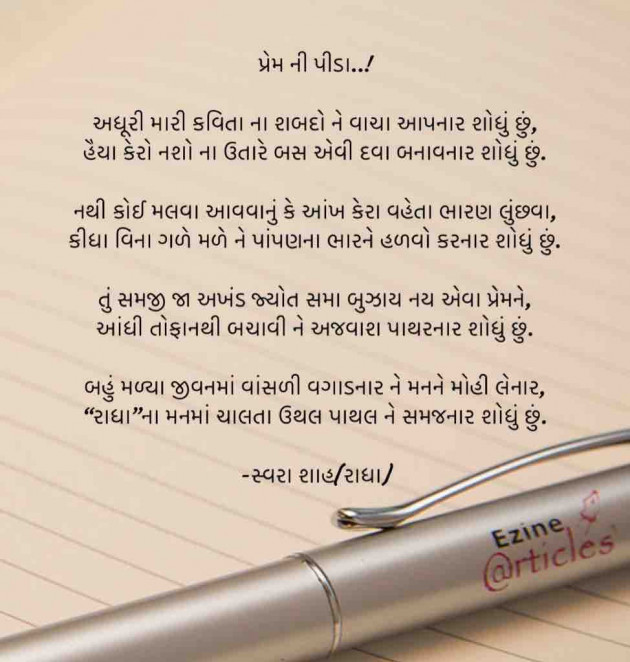 પ્રેમ ની પીડા..!
અધૂરી મારી કવિતા ના શબદો ને વાચા આપનાર શોધું છું,
હૈયા કેરો નશો ના ઉતારે બસ એવી દવા બનાવનાર શોધું છું.
નથી કોઈ મલવા આવવાનું કે આંખ કેરા વહેતા ભારણ લુંછવા,
કીધા વિના ગળે મળે ને પાંપણના ભારને હળવો કરનાર શોધું છું.
તું સમજી જા અખંડ જ્યોત સમા બુઝાય નય એવા પ્રેમને,
આંધી તોફાનથી બચાવી ને અજવાશ પાથરનાર શોધું છું.
બહું મળ્યા જીવનમાં વાંસળી વગાડનાર ને મનને મોહી લેનાર,
“રાધા”ના મનમાં ચાલતા ઉથલ પાથલ ને સમજનાર શોધું છું.
-સ્વરા શાહ(રાધા)
Ezine
@rticles